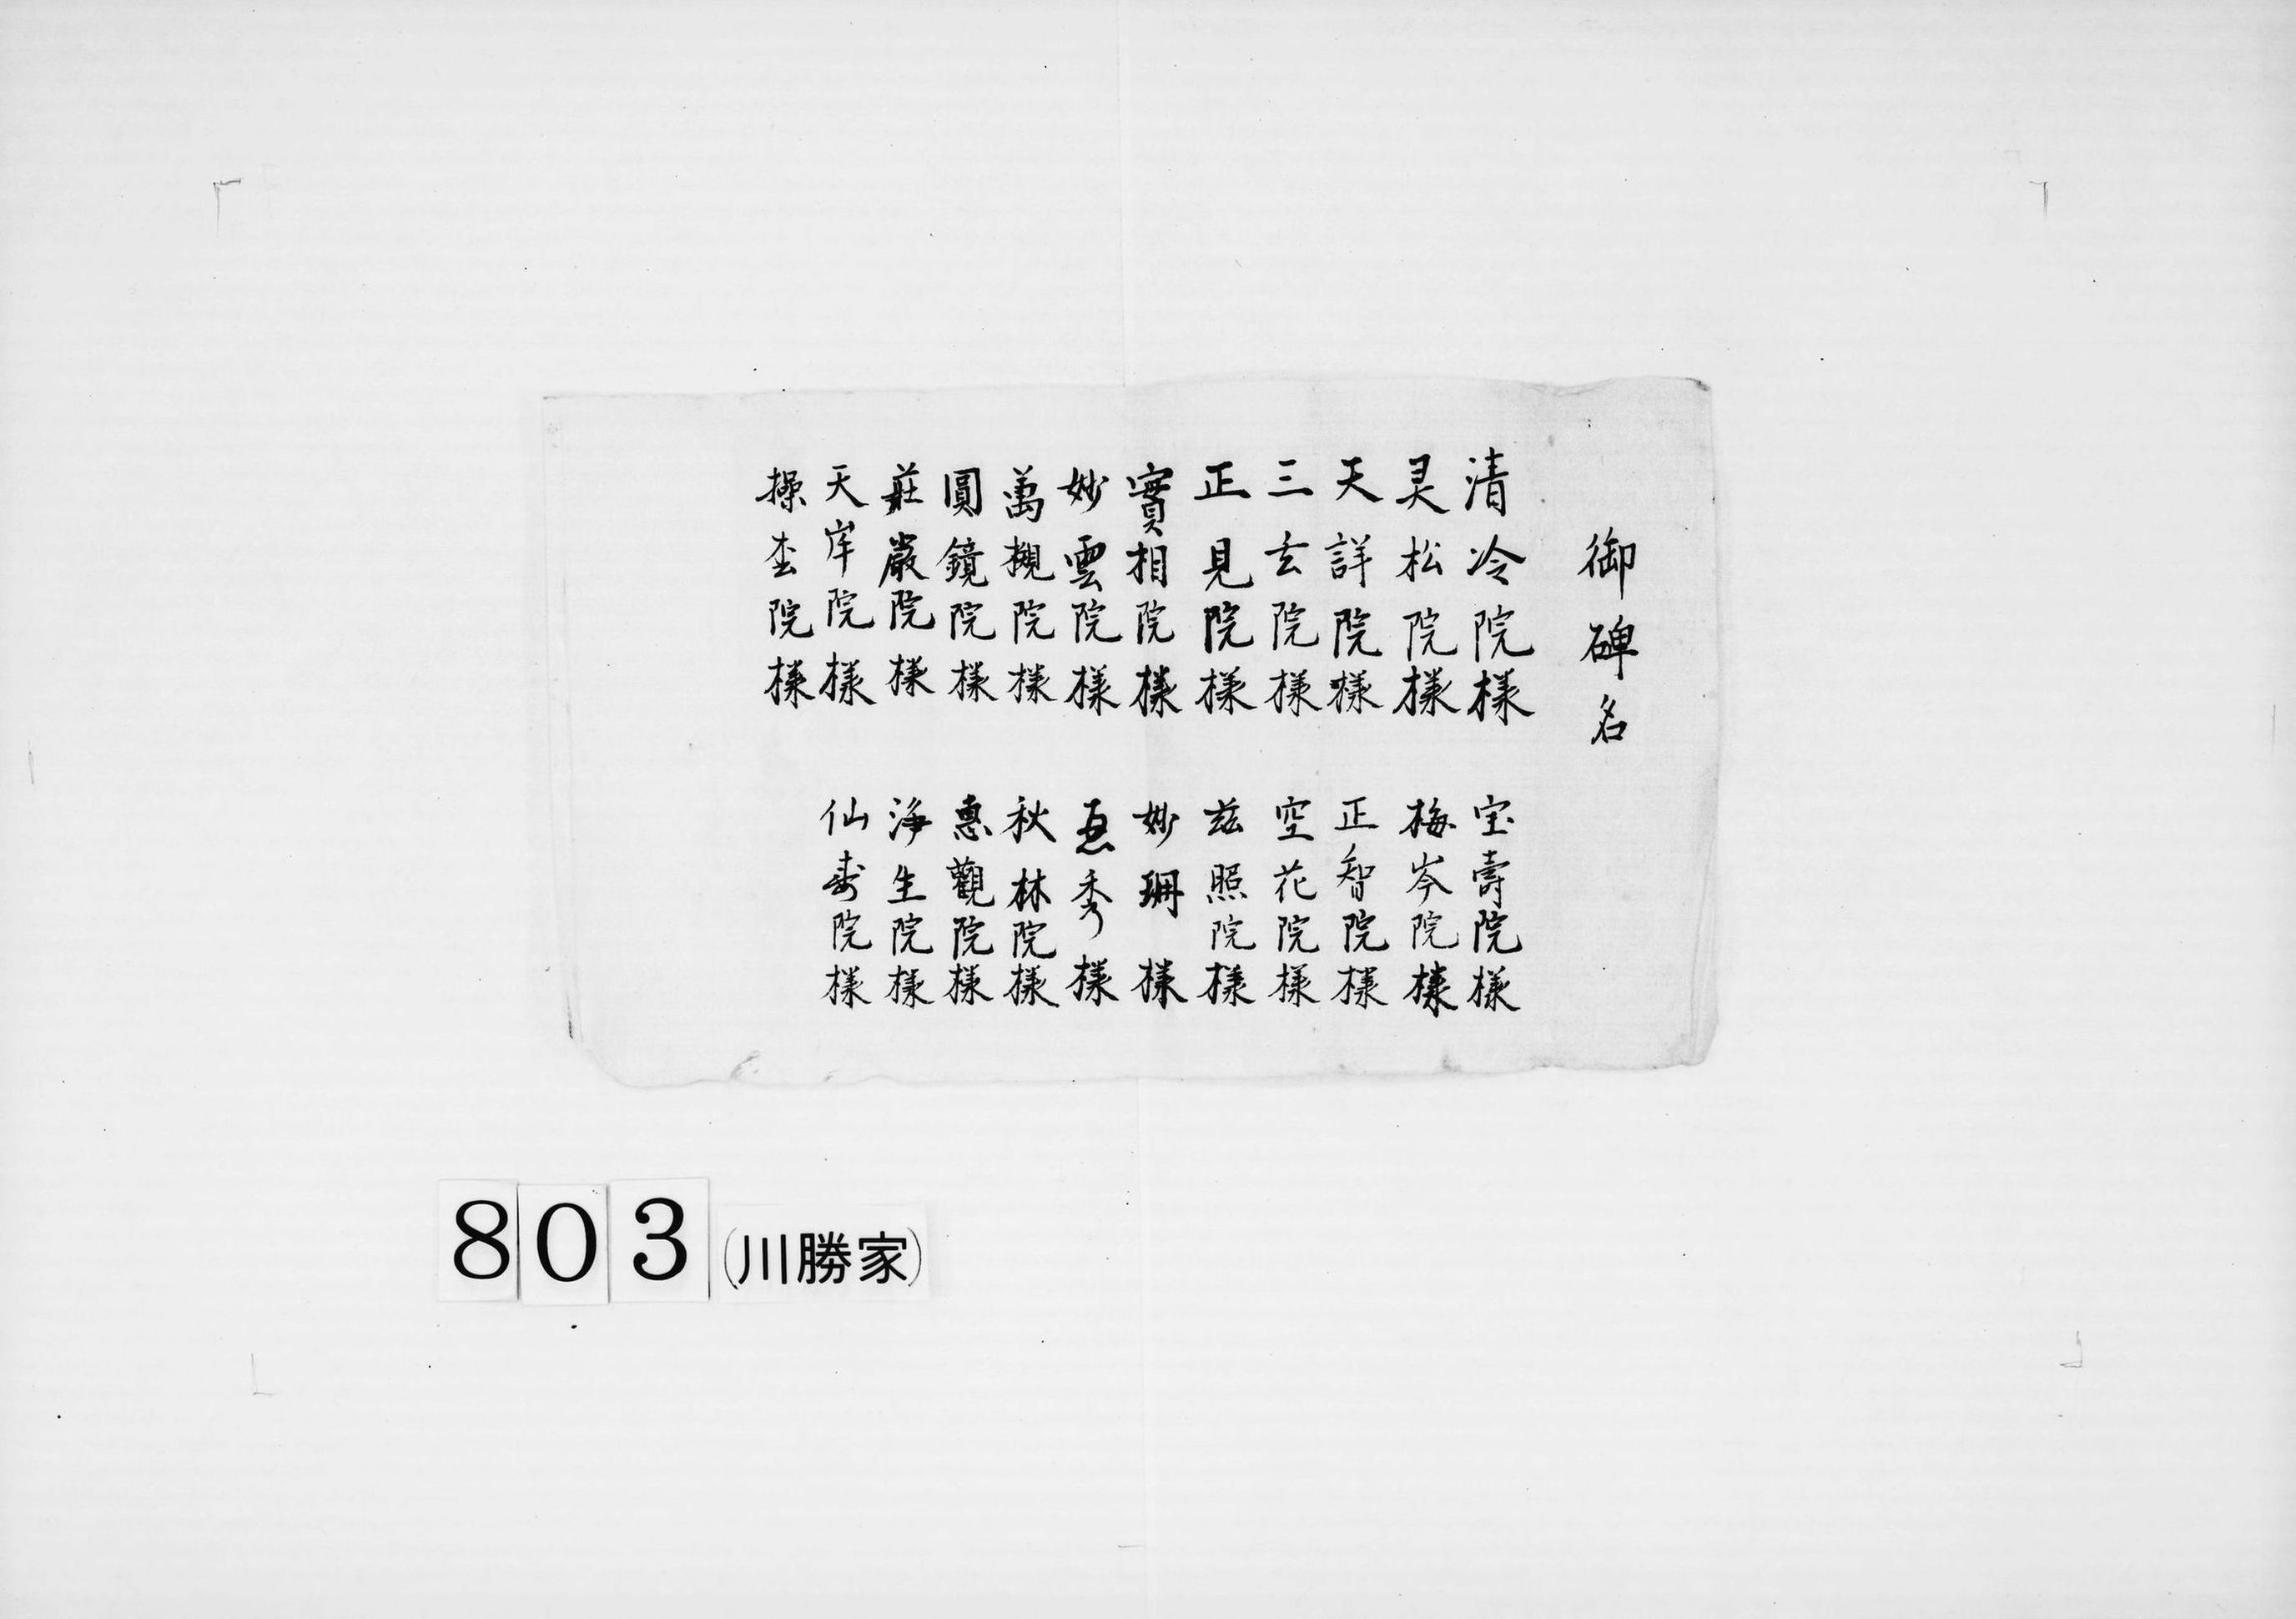 御碑名
清冷院様 宝壽院様
灵松院様 梅岑院様
天詳院様 正智院様
三玄院様 空花院様
正見院様 玆照院様
實相院様 妙珊様
妙雲院様 秀様
萬槻院様 秋林院様
圓鏡院様 惠觀院様
莊嚴院様 淨生院様
天岸院様 仙寿院様
操院様
803(川勝家)